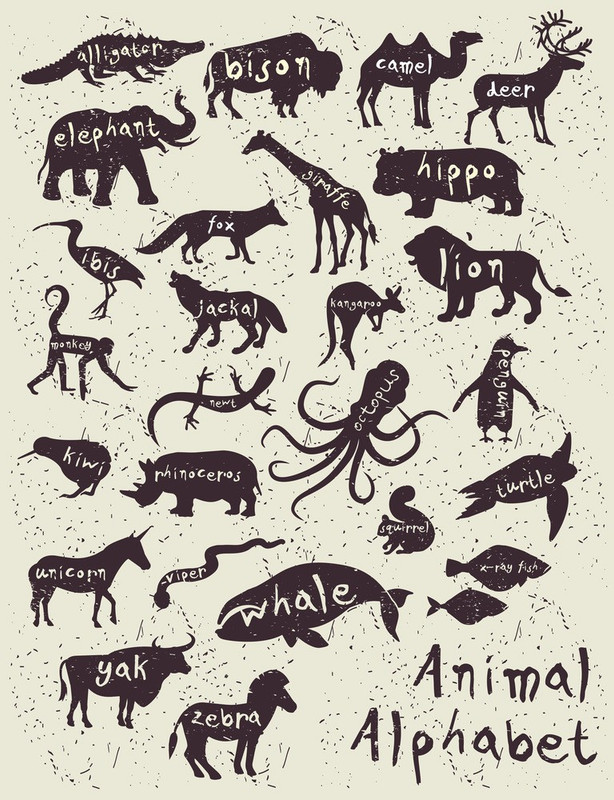 alligator
bison
camel
deer
elephant
giraffe
hippo
fox
ibis
lion
jackal
kangaroo
monkey
penguin
newt
octopus
kiwi
rhinoceros
turtle
squirrel
unicorn
viper
x-ray fish
whale
yak
zebra
Animal
Alphabet